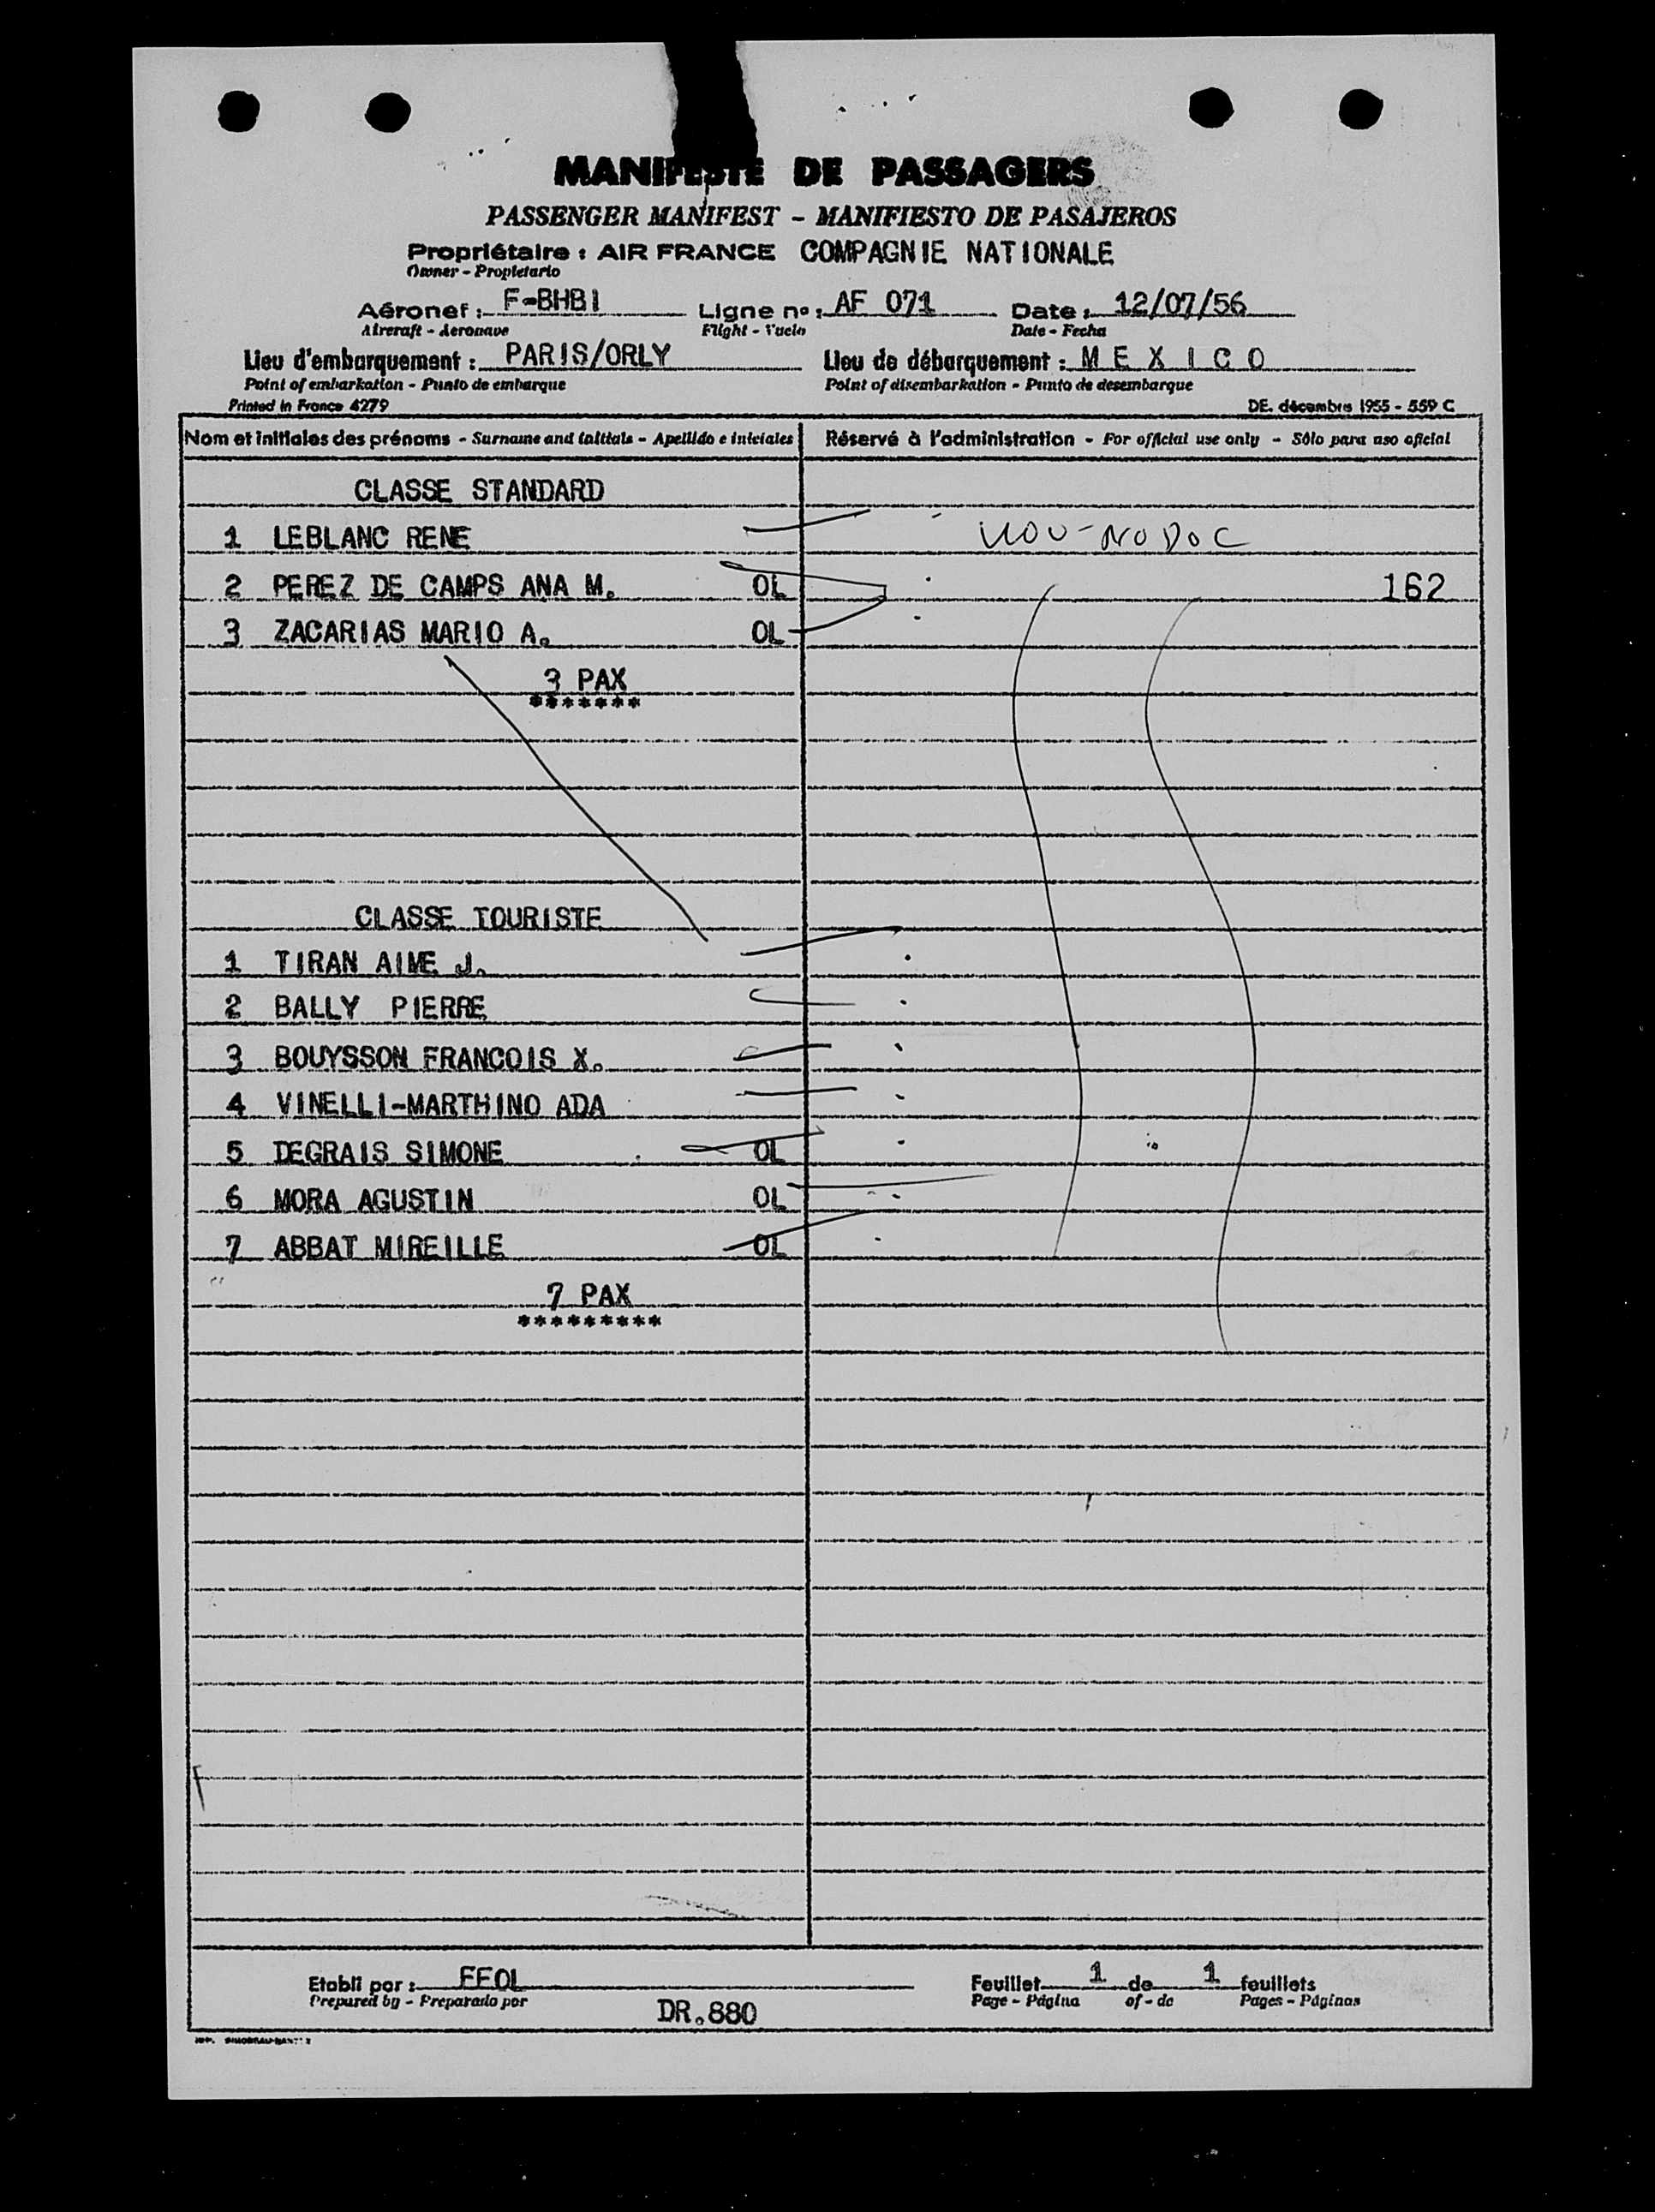 MANIFESTE DE PASSAGERS
PASSENGER MANIFEST - MANIFIESTO DE PASAJEROS
Propriétaire : AIR FRANCE COMPAGNIE NATIONALE
Owner - Propietario
Aéronef : F-BHBI Ligne no : AF 071 Date : 12/07/56
Aircraft - Aeronave Flight - Vuelo Date - Fecha
Lieu d'embarquement : PARIS/ORLY Lieu de débarquement : M E X I C O
Point of embarkation - Punto de embarque Point of disembarkation - Punto de desembarque
Printed in France 4279 DE. décembre 1955 - 559 C
Nom et initiales des prénoms - Surname and initials - Apellido e iniciales Réservé à l'administration - For official use only - Sólo para uso oficial
CLASSE STANDARD
1 LEBLANC RENE NODOC
2 PEREZ DE CAMPS ANA M. OL 162
3 ZACARIAS MARIO A. OL
3 PAX
*******
CLASSE TOURISTE
1 TIRAN AIME J.
2 BALLY PIERRE
3 BOUYSSON FRANCOIS X.
4 VINELLI-MARTHINO ADA
5 DEGRAIS SIMONE OL
6 MORA AGUSTIN OL
7 ABBAT MIREILLE OL
7 PAX
*********
Etabli par : FFOL Feuillet 1 de 1 feuillets
Prepared by - Preparado por Page - Página of - de Pages - Páginas
DR.880